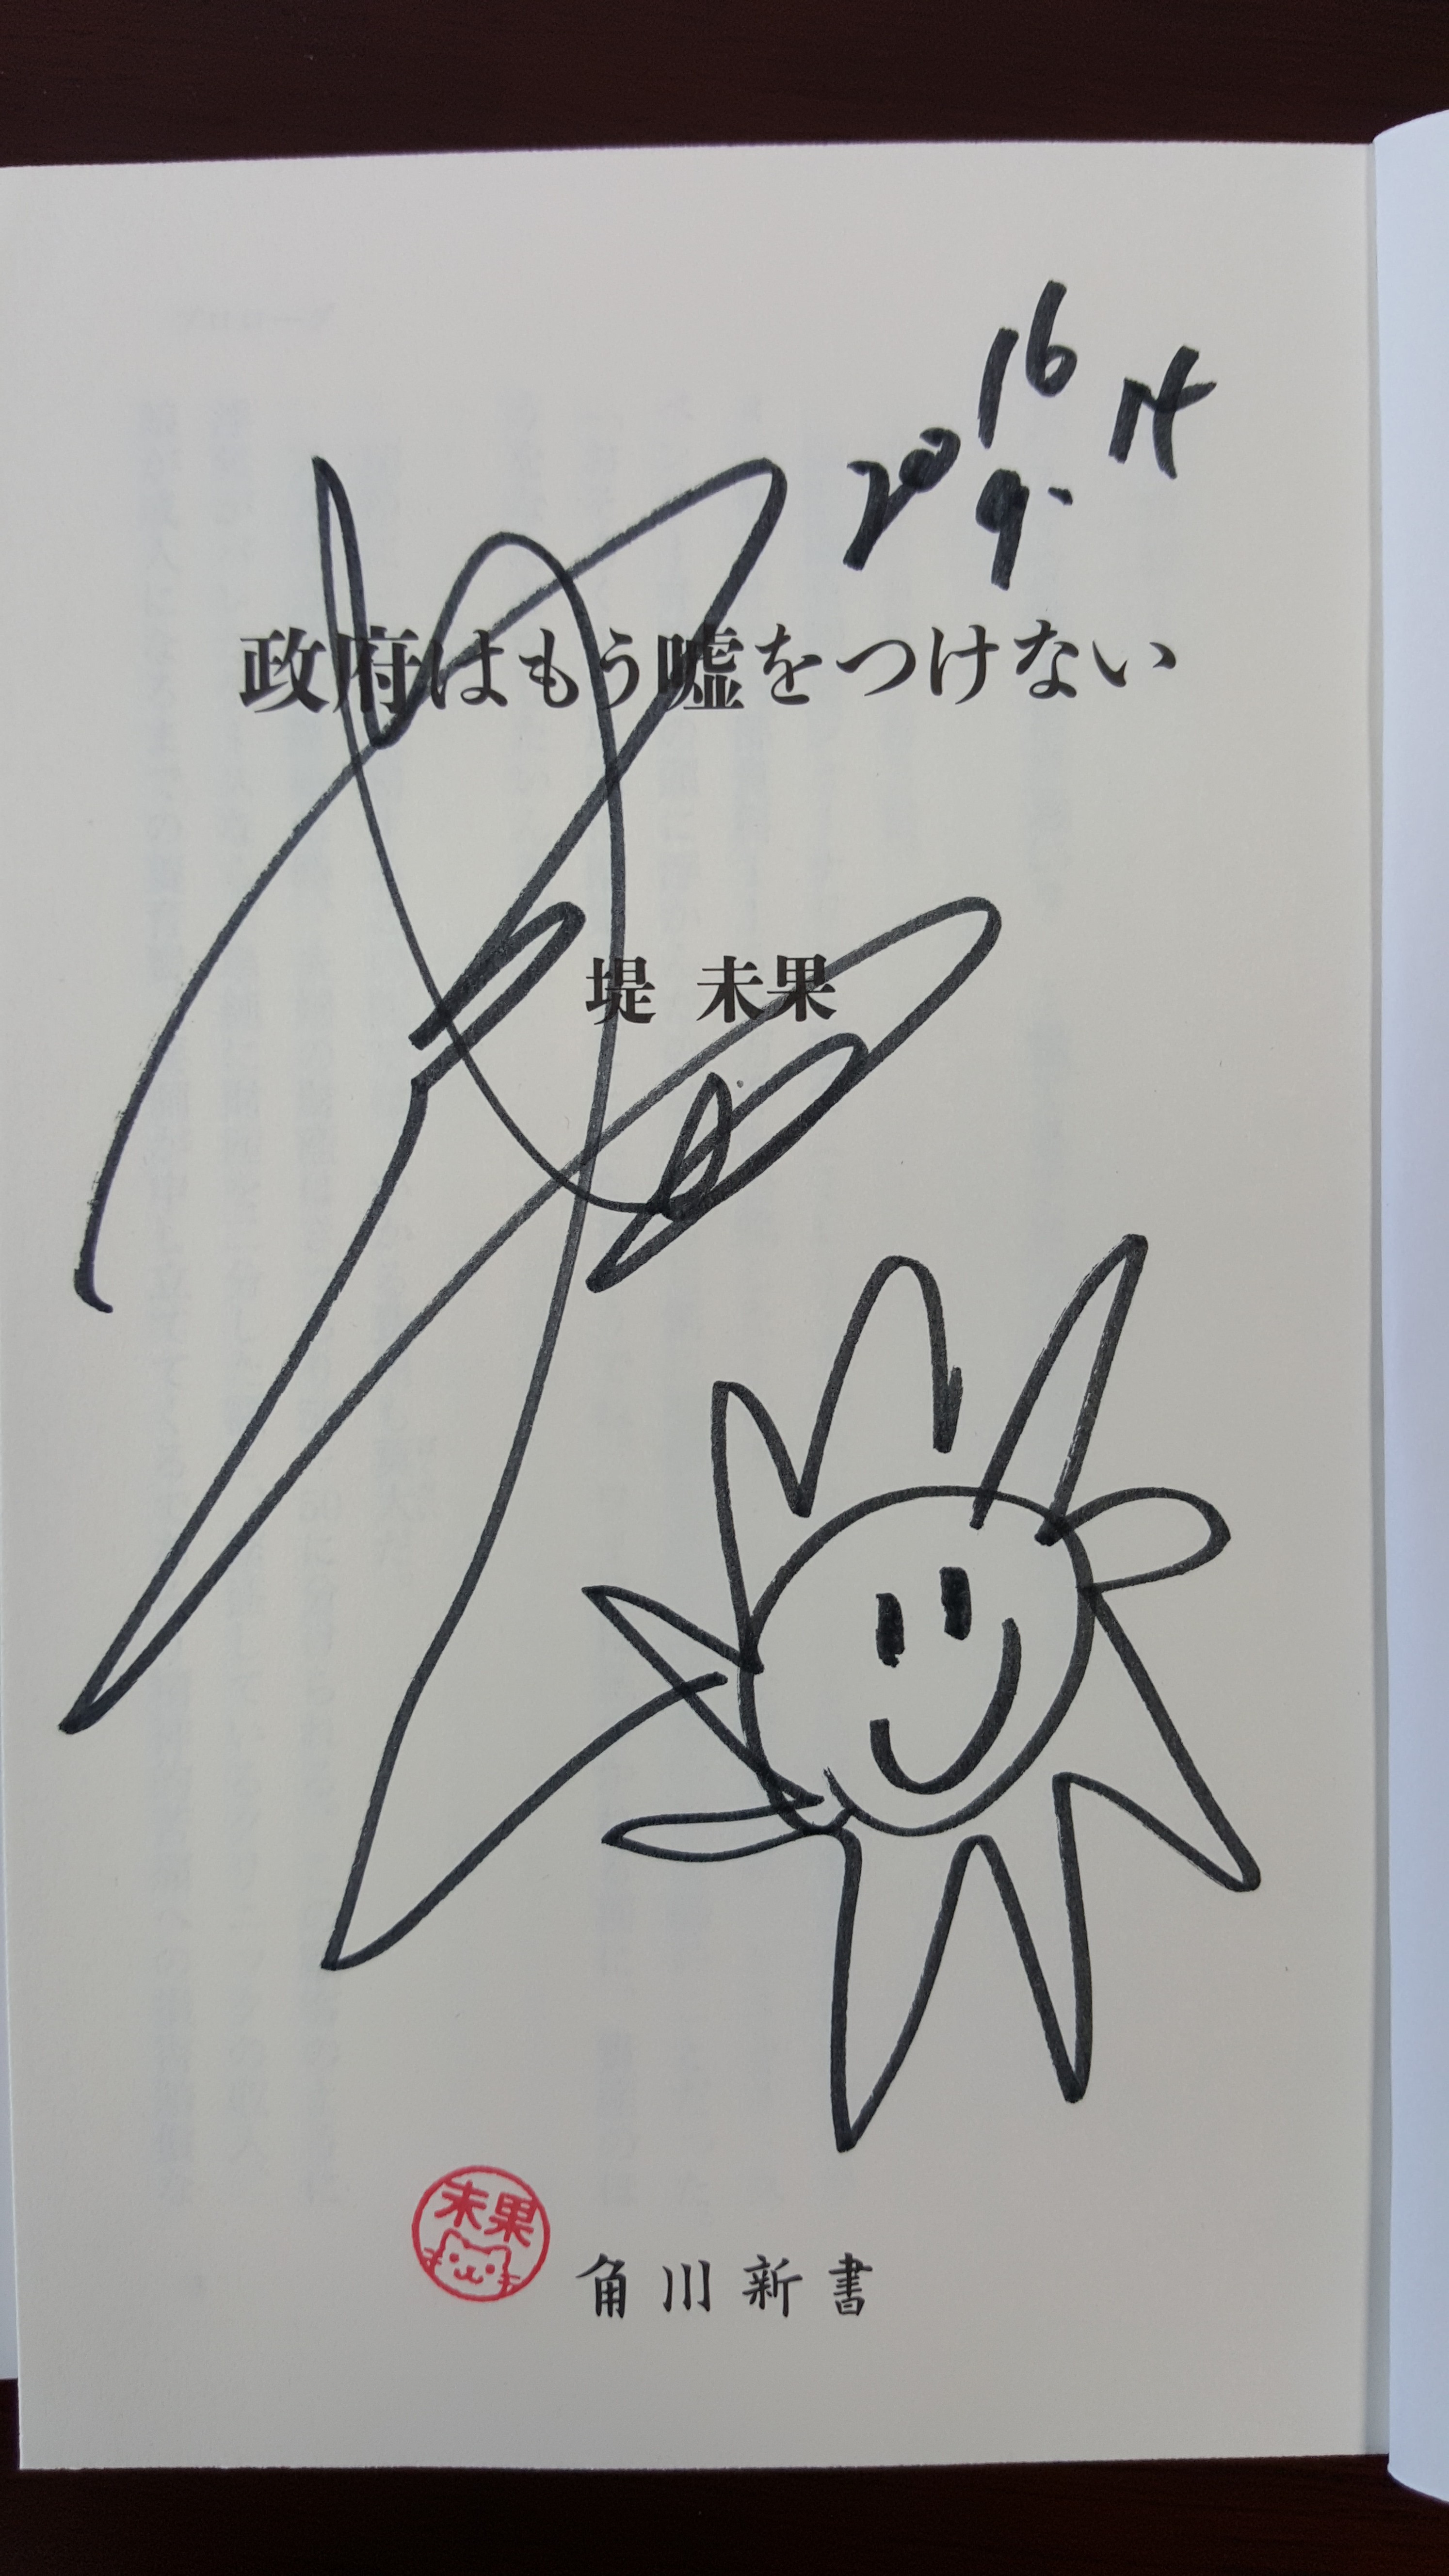 2016
9.14
政府はもう嘘をつけない
堤 未果
未果
角川新書